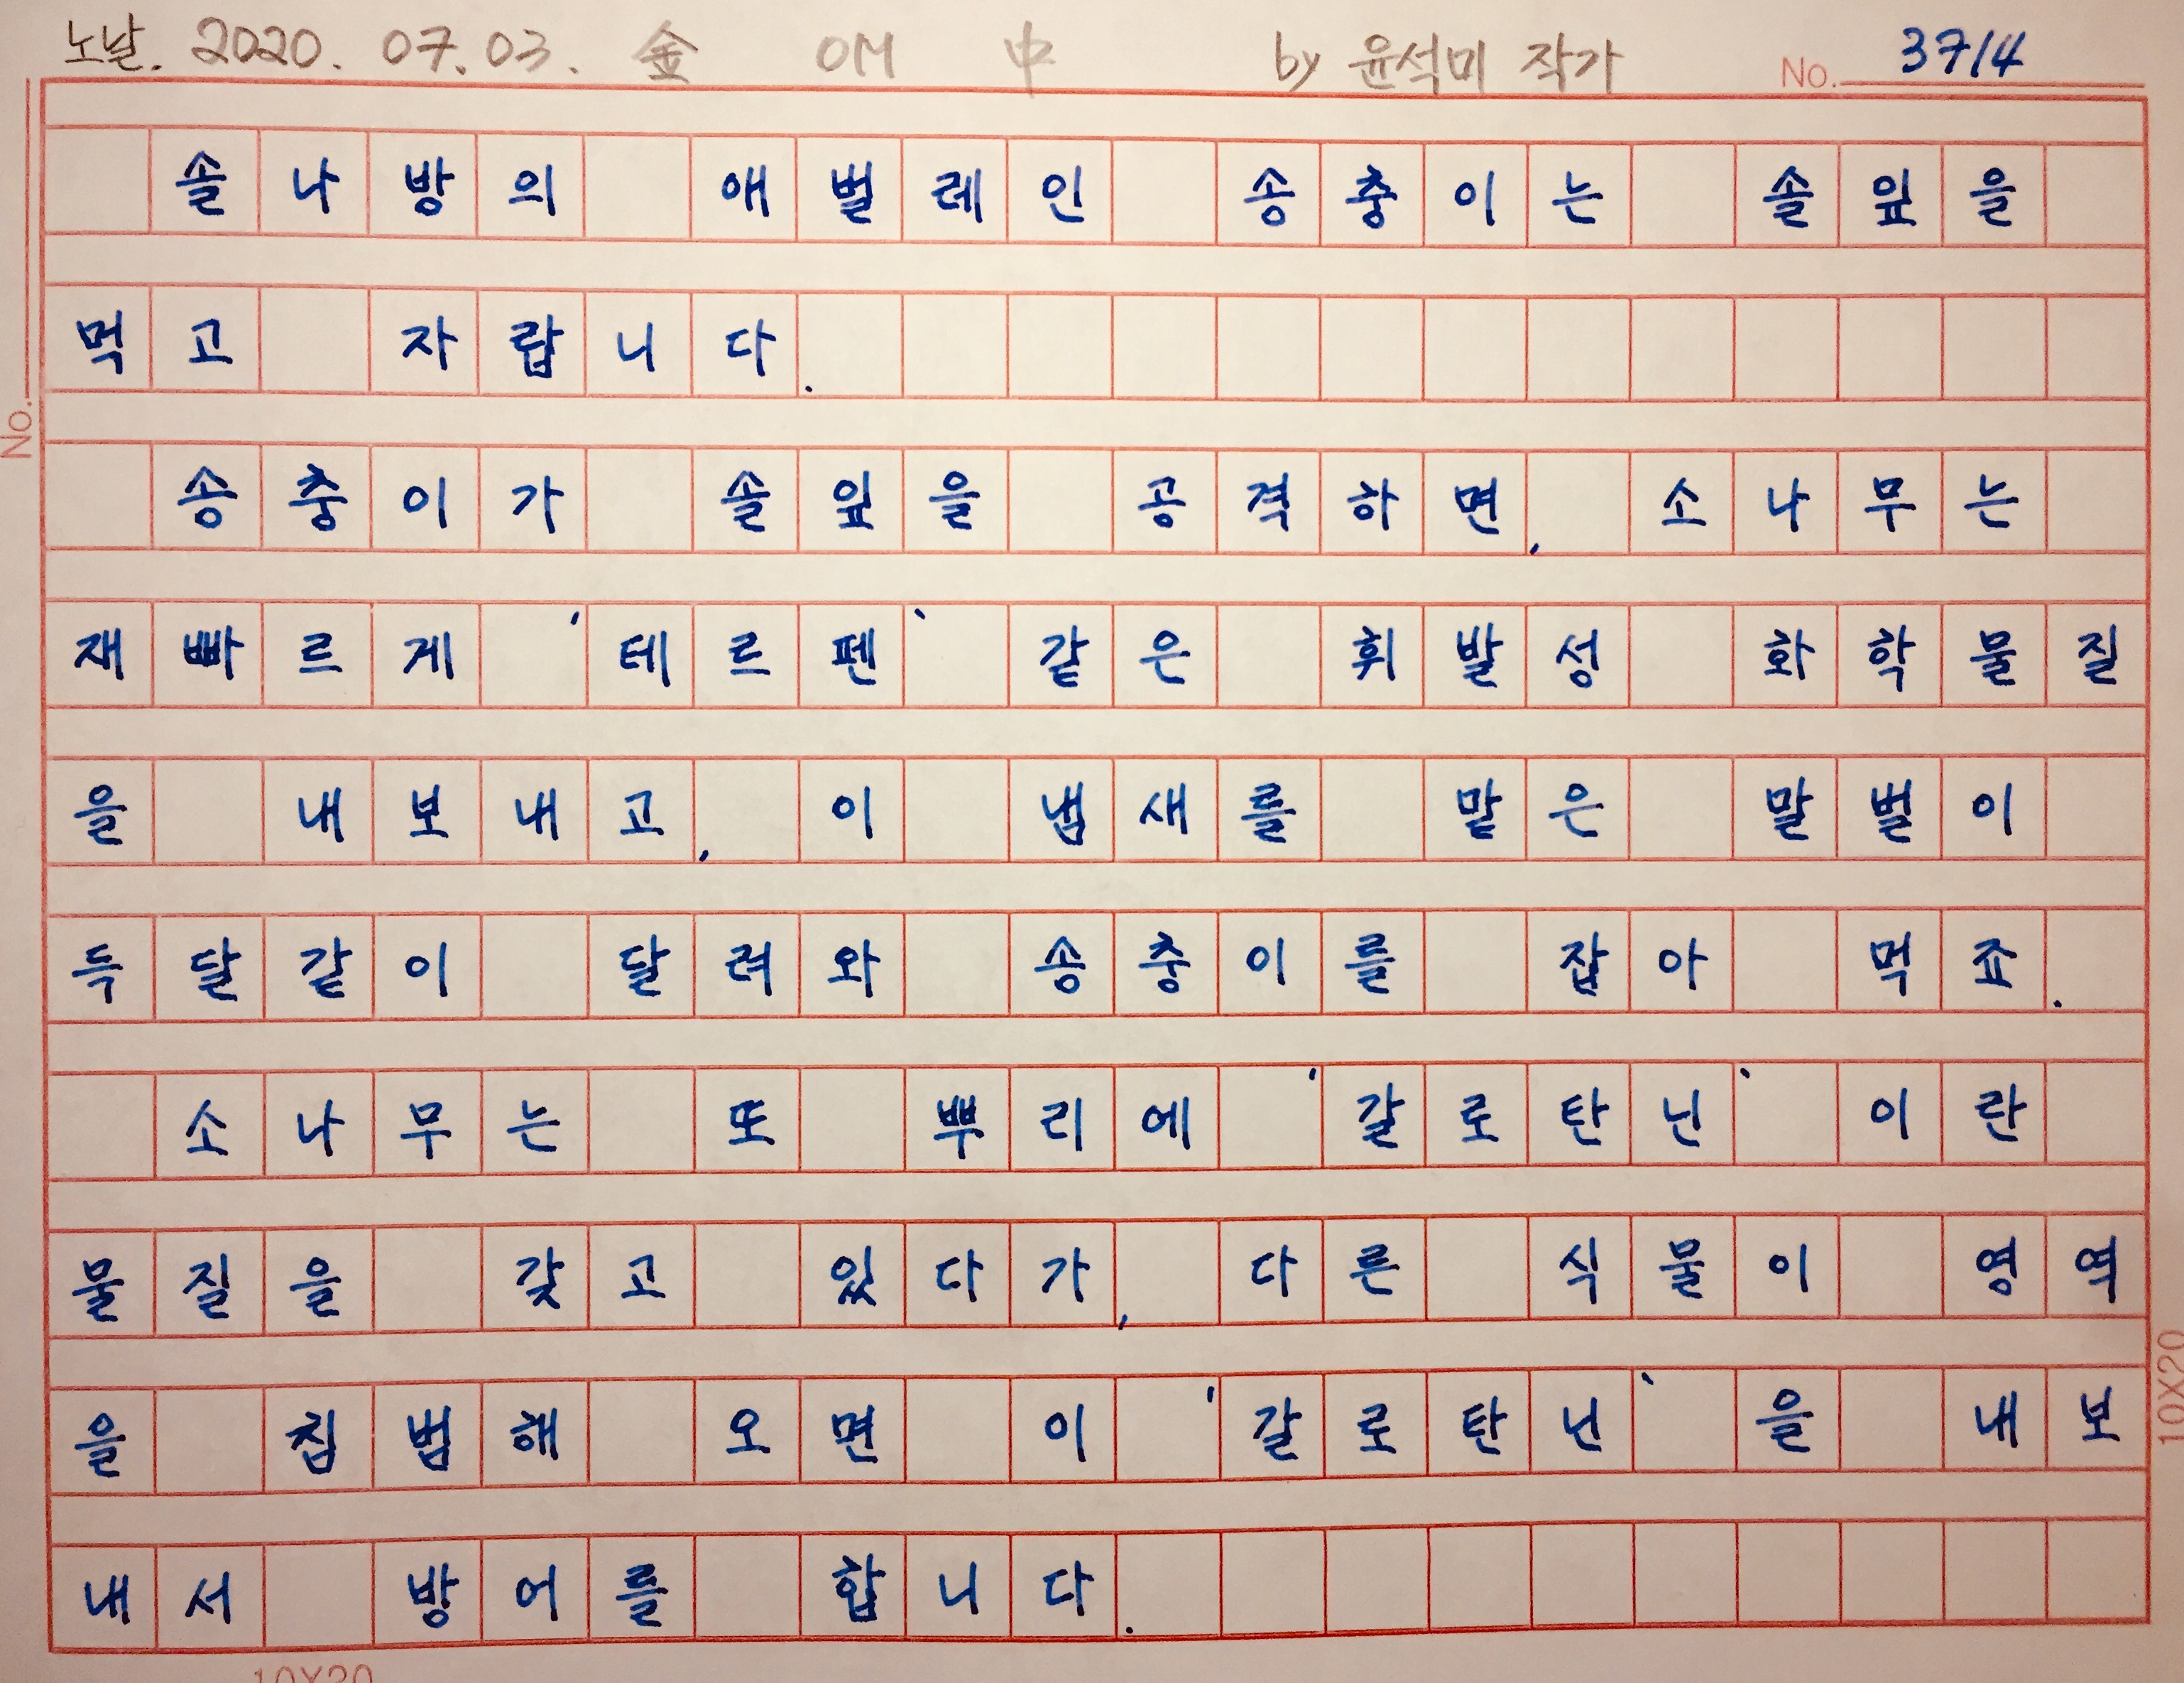 노날. 2020. 07. 03. 金 OM 中 by 윤석미 작가 No. 3714
솔나방의 애벌레인 송충이는 솔잎을
먹고 자랍니다.
No.
송충이가 솔잎을 공격하면, 소나무는
재빠르게 '테르펜' 같은 휘발성 화학물질
을 내보내고, 이 냄새를 맡은 말벌이
득달같이 달려와 송충이를 잡아 먹죠.
소나무는 또 뿌리에 '갈로탄닌' 이란
물질을 갖고 있다가, 다른 식물이 영역
을 침범해 오면 이 '갈로탄닌' 을 내보
10X20
내서 방어를 합니다.
10X20